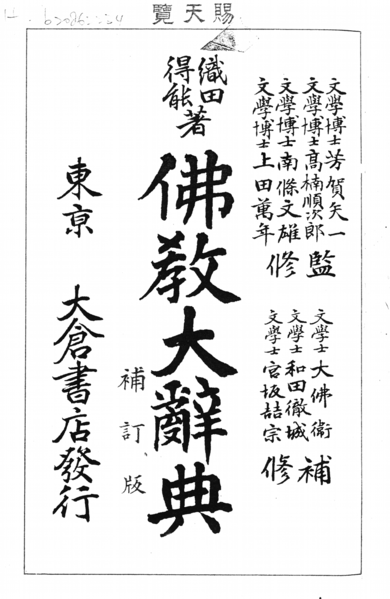 賜天覽
文學博士 芳賀矢一
文學博士 高楠順次郎
文學博士 南條文雄
文學博士 上田萬年
監修
文學士 大佛衛
文學士 和田徹城
文學士 宮坂喆宗
補修
織田得能著
佛教大辭典
補訂版
東京 大倉書店發行